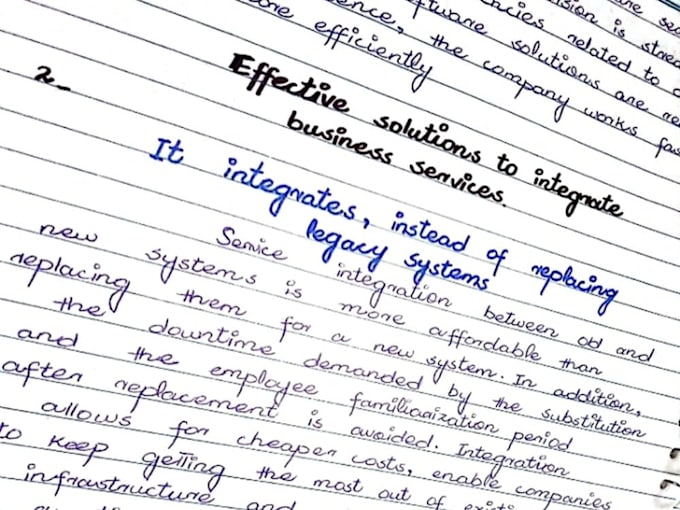 related to
solutions are
the company works
efficiently
2-
Effective solutions to integrate
business services.
It integrates, instead of replacing
legacy systems
Service integration between old and
new systems is more affordable than
replacing them for a new system. In addition,
the downtime demanded by the substitution
and the employee familiarization period
after replacement is avoided. Integration
allows for cheaper costs, enable companies
to keep getting the most out of
infraustructure and